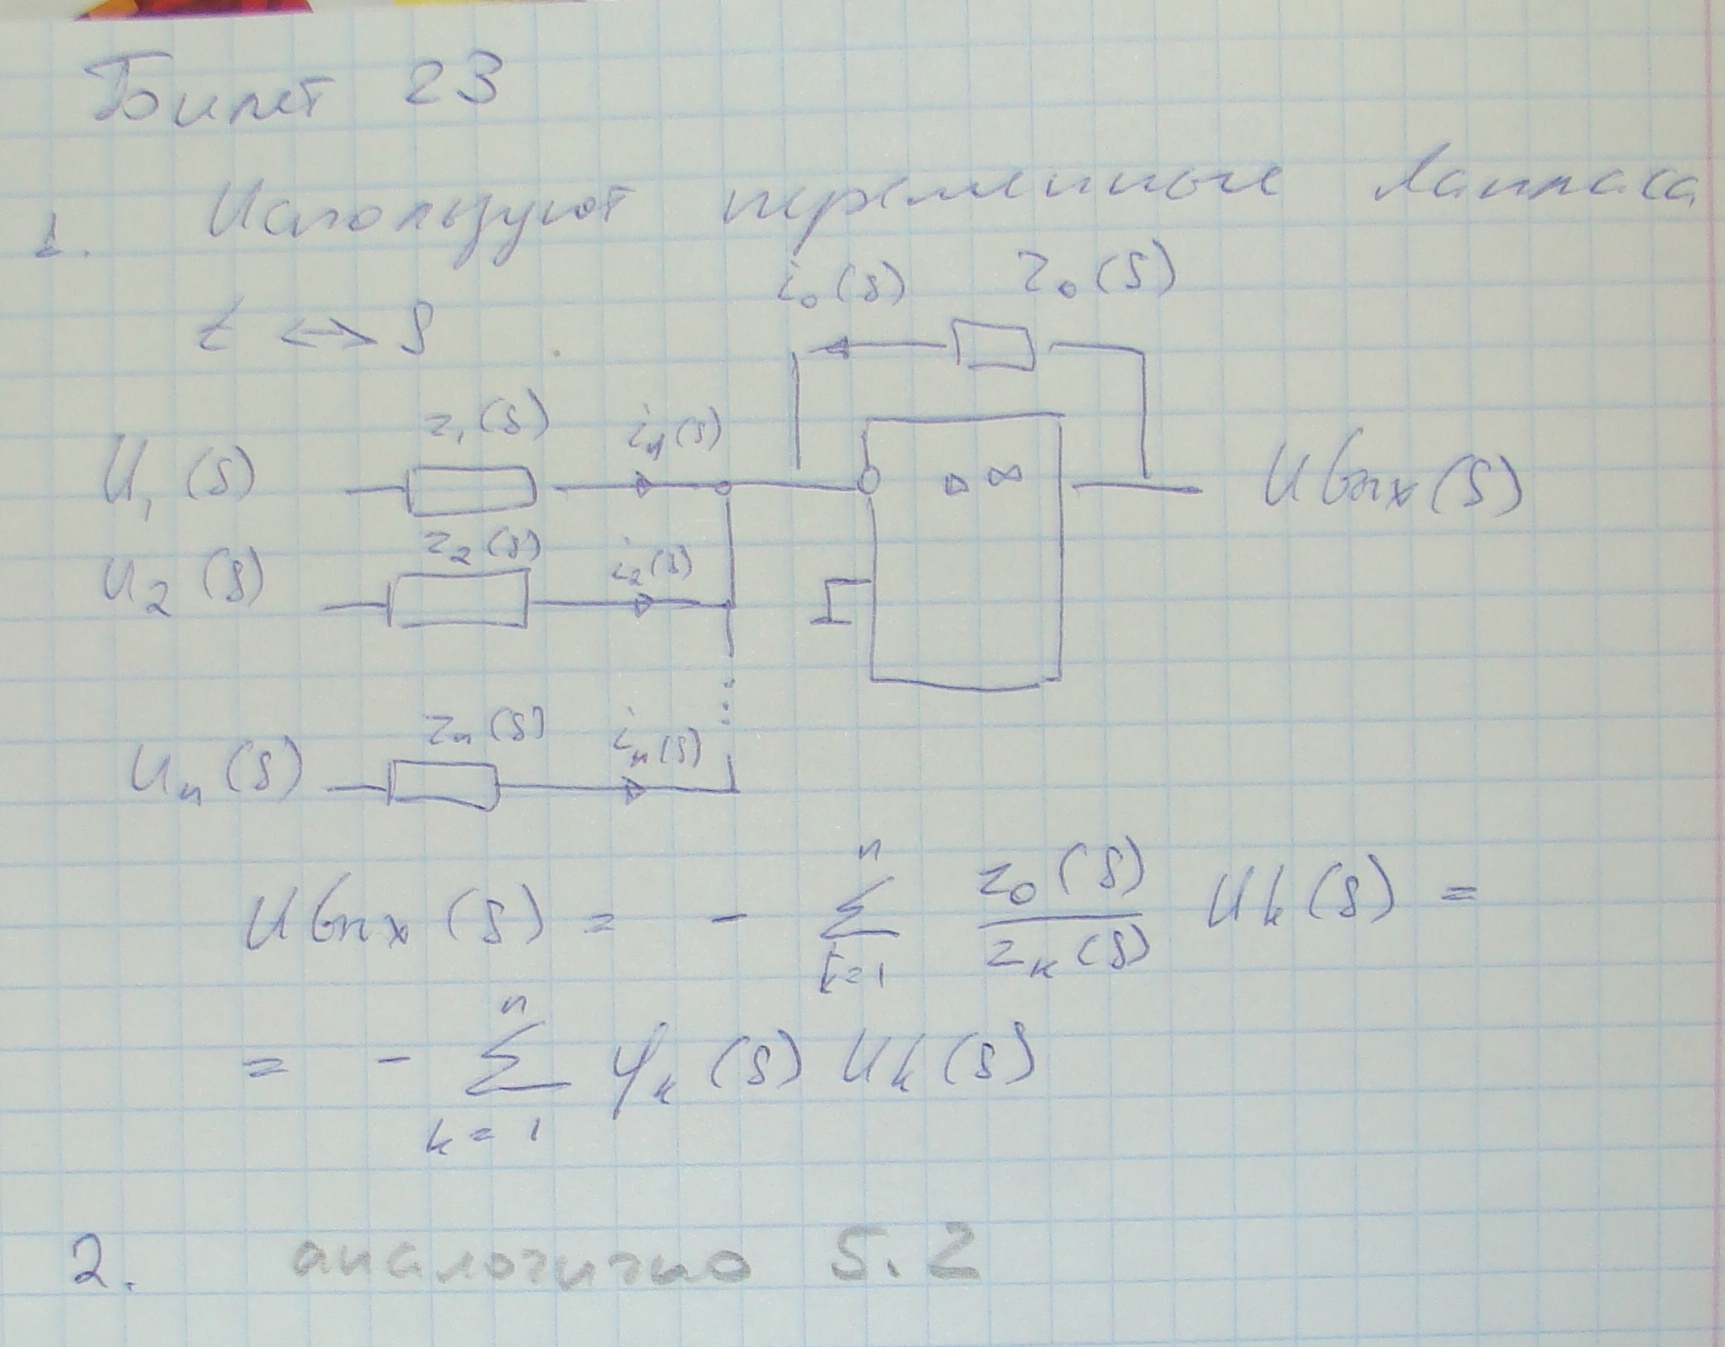 Билет 23
1. Используют переменные Лапласа
t <-> s
i₀(s) z₀(s)
U₁(s) z₁(s) i₁(s) ▷ ∞ Uвых(s)
U₂(s) z₂(s) i₂(s)
Uₙ(s) zₙ(s) iₙ(s)
Uвых(s) = - ∑ₖ₌₁ⁿ z₀(s)/zₖ(s) Uₖ(s) =
= - ∑ₖ₌₁ⁿ φₖ(s) Uₖ(s)
2. аналогично 5.2